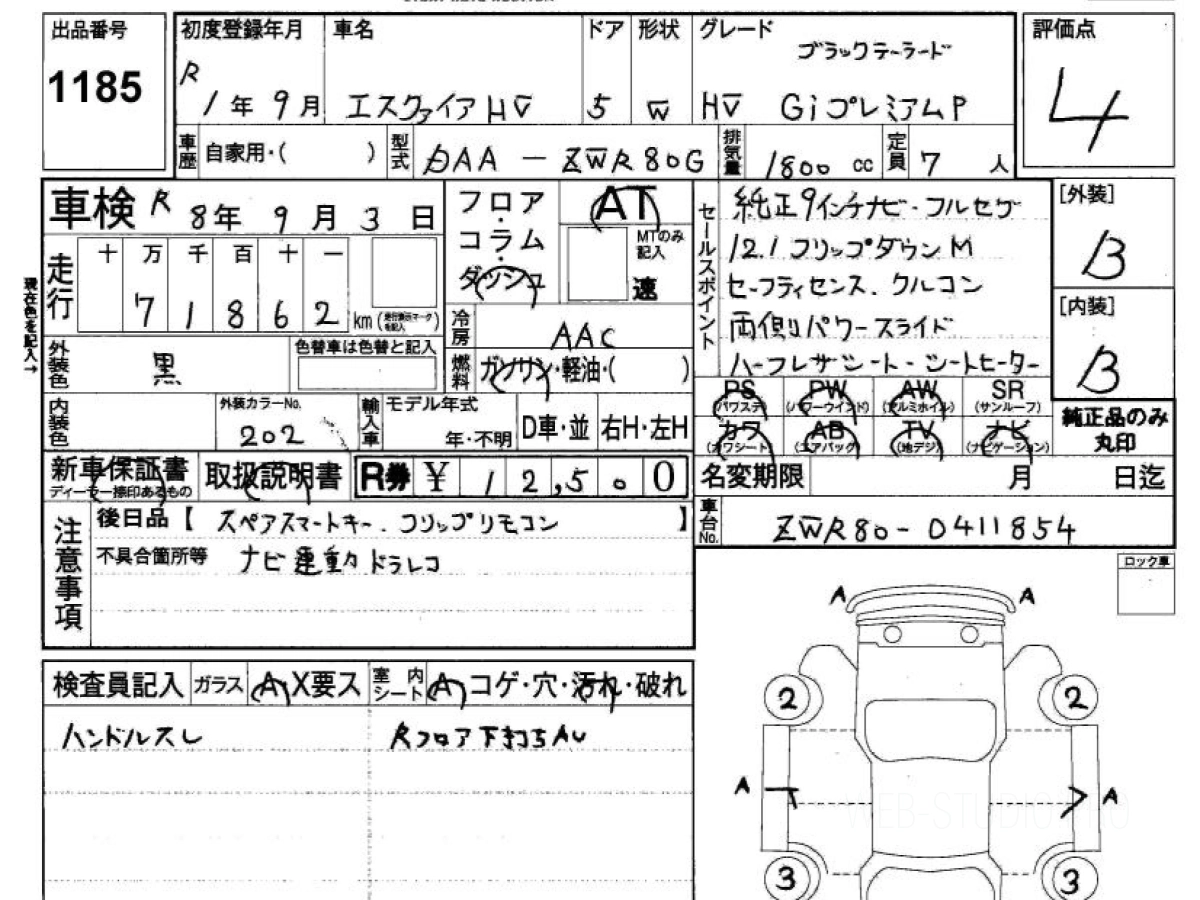 出品番号 初度登録年月 車名 ドア 形状 グレード 評価点
1185 R1年9月 エスクァイアHV 5 W ブラックテーラード
HV Giプレミアム P 4
車歴 自家用・( ) 型式 DAA-ZWR80G 排気量 1800cc 定員 7人
車検 R8年9月3日
フロア・コラム・ダッシュ AT MTのみ記入 速
セールスポイント
純正9インチナビ・フルセグ
12.1フリップダウンM
セーフティセンス.クルコン
両側パワースライド
ハーフレザシート・シートヒーター
[外装] B
[内装] B
現在色を記入→
走行 十万千百十一 71862 km (走行表示マークを記入)
冷房 AAC
外装色 黒 色替車は色替と記入
燃料 ガソリン・軽油・( )
PS (パワステ) PW (パワーウインド) AW (アルミホイル) SR (サンルーフ)
カワ (カワシート) AB (エアバック) TV (地デジ) ナビ (ナビゲーション)
純正品のみ丸印
内装色 外装カラーNo. 202 輸入車 モデル年式 年・不明 D車・並 右H・左H
新車保証書 ディーラー捺印あるもの 取扱説明書 R券 ¥12,500
名変期限 月 日迄
車台No. ZWR80-0411854
注意事項
後日品【スペアスマートキー.フリップリモコン】
不具合箇所等 ナビ連動ドラレコ
ロック車
検査員記入 ガラス A X要ス 室内シート A コゲ・穴・汚れ・破れ
ハンドルスレ Rフロア下打ちAU
A A
2 2
A A
3 3
WEB-STUDIO